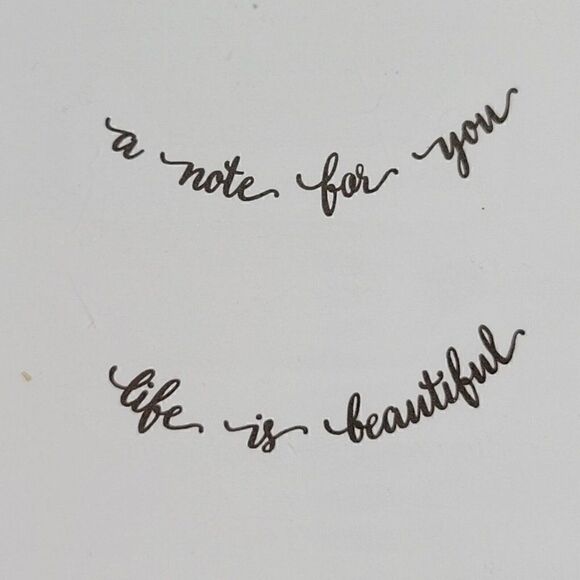 a note for you
life is beautiful